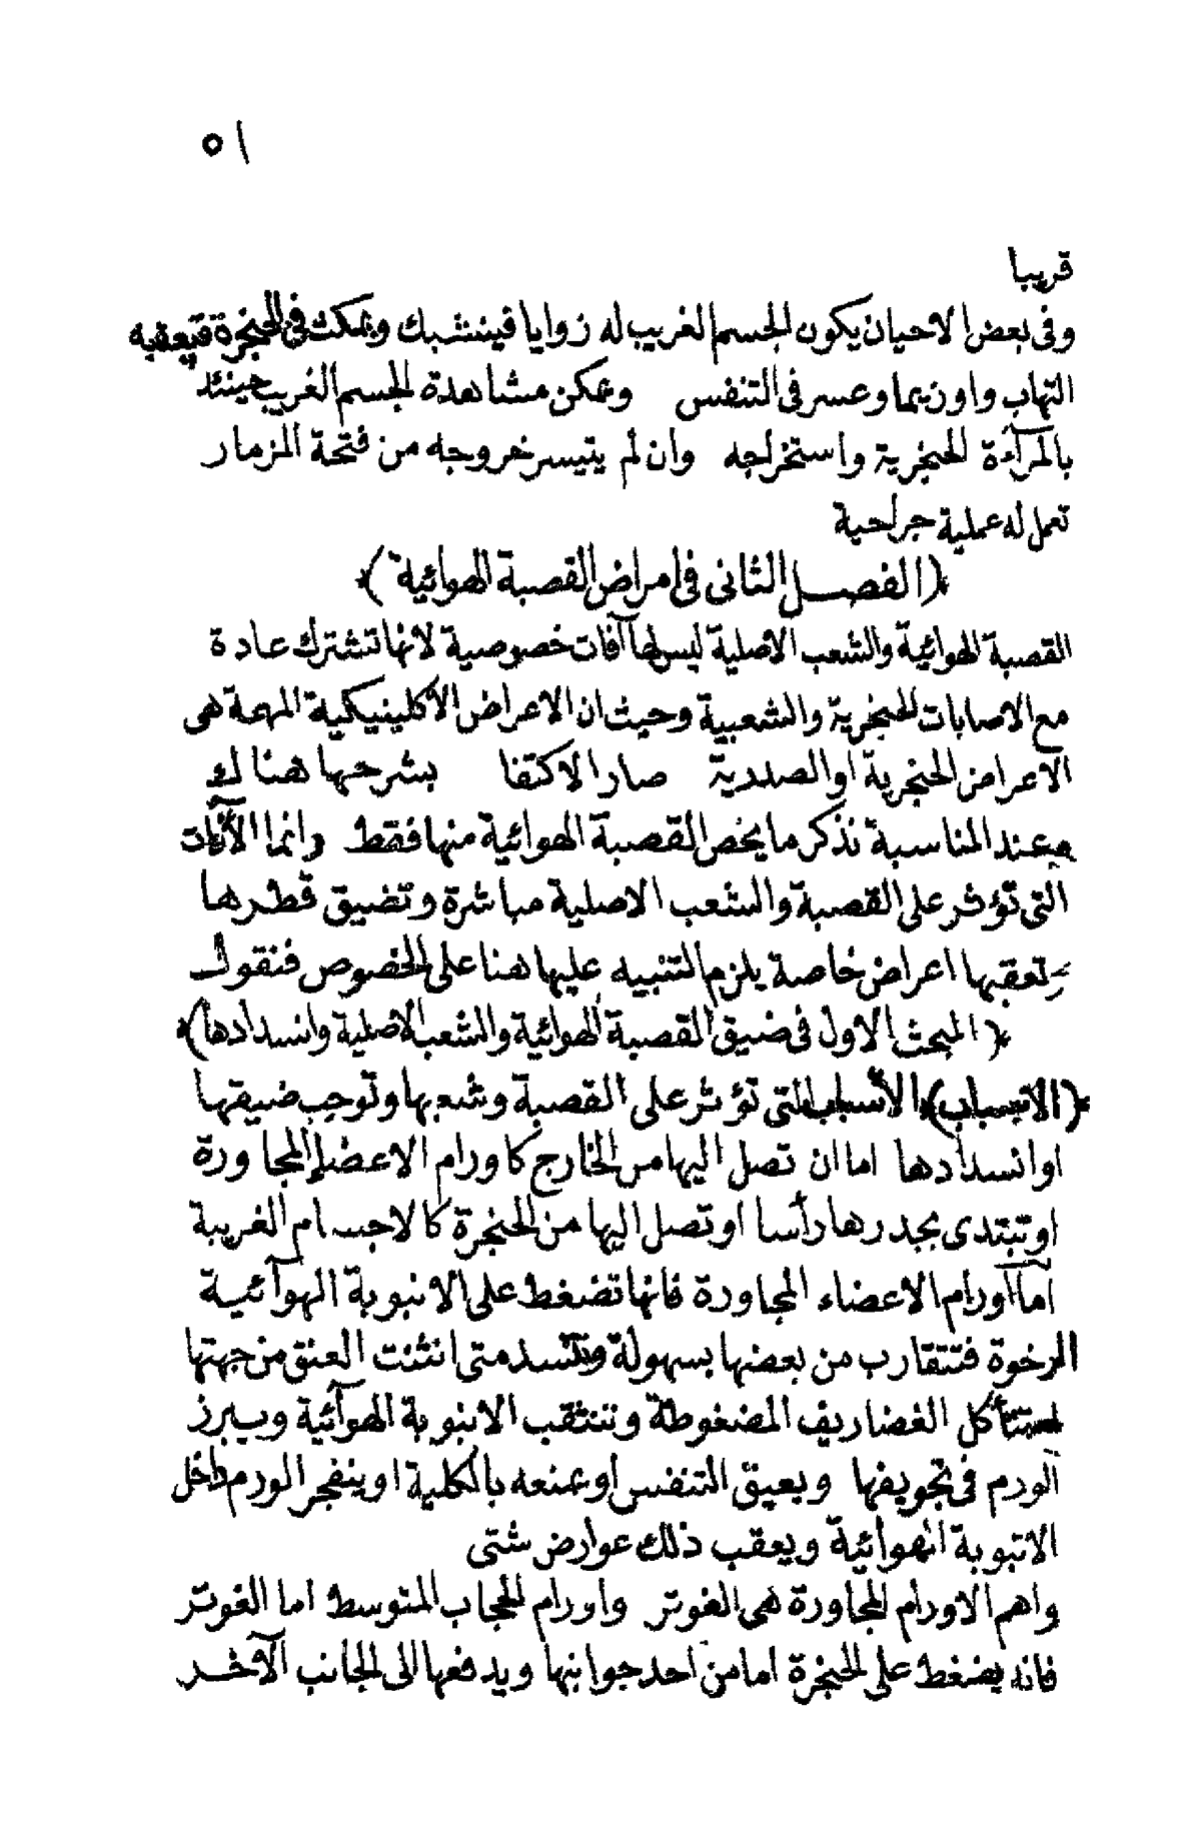 ٥١
قريبا
وفى بعض الاحيان يكون الجسم الغريب له زوايا فينشبك ويمكث فى الحنجرة فيعقبه
التهاب واوزيما وعسر فى التنفس ويمكن مشاهدة الجسم الغريب حينئذ
بالمرآءة الحنجرية واستخراجه وان لم يتيسر خروجه من فتحة المزمار
تعمل له عملية جراحية
﴿(الفصل الثانى فى امراض القصبة الهوائية)﴾
القصبة الهوائية والشعب الاصلية ليس لها آفات خصوصية لانها تشترك عادة
مع الاصابات الحنجرية والشعبية وحيث ان الاعراض الاكلينيكية المهمة هى
الاعراض الحنجرية او الصدرية صار الاكتفا بشرحها هناك
وعند المناسبة نذكر ما يخص القصبة الهوائية منها فقط وانما الآفات
التى تؤثر على القصبة والشعب الاصلية مباشرة وتضيق قطرها
وتعقبها اعراض خاصة يلزم التنبيه عليها هنا على الخصوص فنقول
﴿(المبحث الاول فى ضيق القصبة الهوائية والشعب الاصلية وانسدادها)﴾
﴿(الاسباب)﴾ الاسباب التى تؤثر على القصبة وشعبها وتوجب ضيقها
او انسدادها اما ان تصل اليها من الخارج كاورام الاعضاء المجاورة
او تبتدى بجدرها رأسا او تصل اليها من الحنجرة كالاجسام الغريبة
اما اورام الاعضاء المجاورة فانها تضغط على الانبوبة الهوآئية
الرخوة فتتقارب من بعضها بسهولة وتنسد متى انثنت العنق من جهتها
فتتأكل الغضاريف المضغوطة وتنثقب الانبوبة الهوآئية ويبرز
الورم فى تجويفها ويعيق التنفس او يمنعه بالكلية او ينفجر الورم داخل
الانبوبة الهوائية ويعقب ذلك عوارض شتى
واهم الاورام المجاورة هى الغوتر واورام الحجاب المتوسط اما الغوتر
فانه يضغط على الحنجرة اما من احد جوانبها ويدفعها الى الجانب الآخر